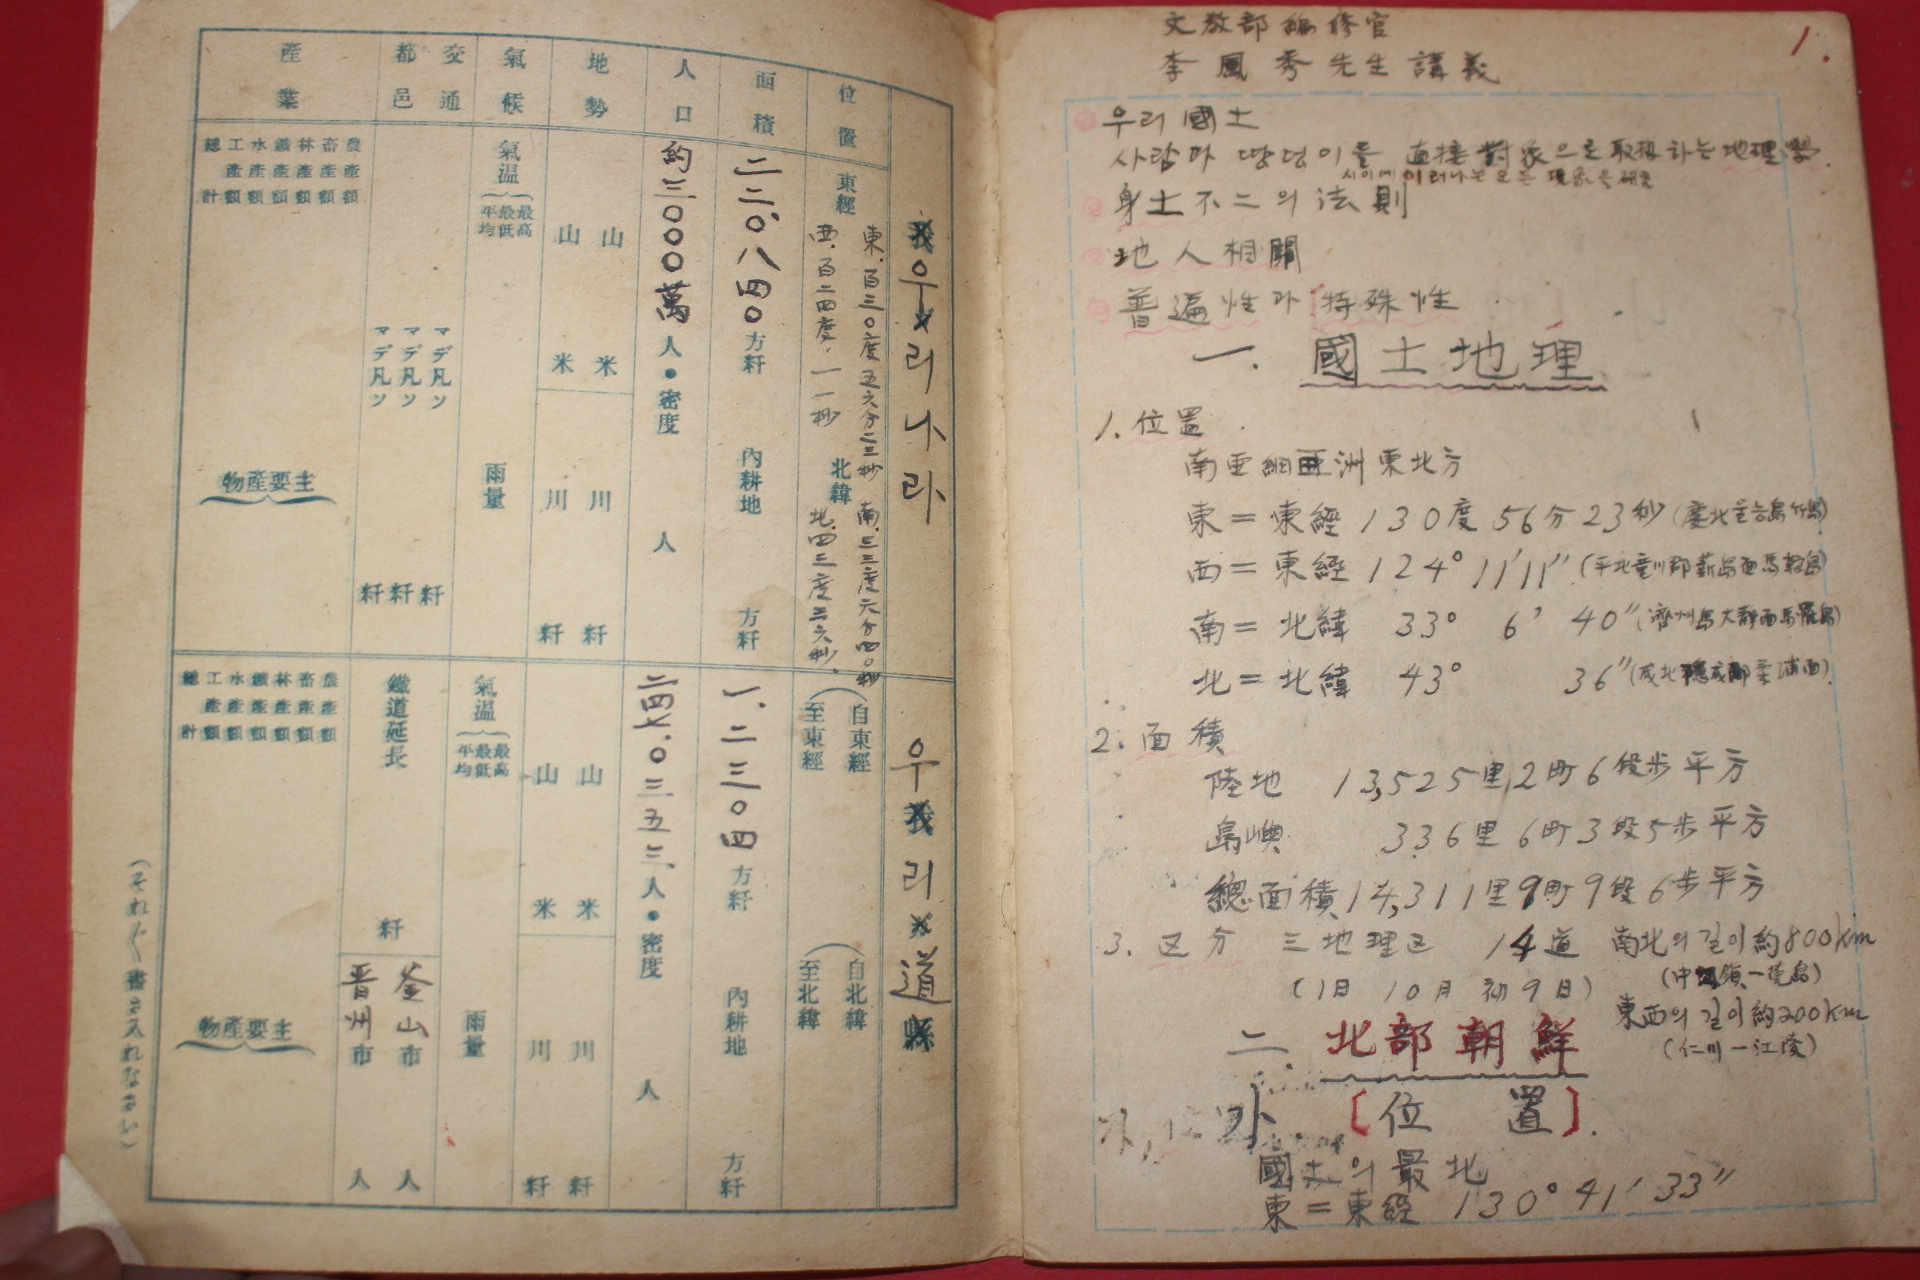 文敎部編修官
李鳳秀先生講義
1.
우리 國土
사람과 땅덩이를 直接 對象으로 取扱하는 地理學.
사이에 이러나는 모든 現象을 研究
身土不二의 法則
地人相關
普遍性과 特殊性
一. 國土地理
1. 位置.
南亜細亜洲東北方
東＝東經 130度 56分 23秒 (慶北 島竹島)
西＝東經 124° 11′11″ (平北龍川郡薪島面馬鞍島)
南＝北緯 33° 6′ 40″ (濟州島大静面馬羅島)
北＝北緯 43° 36″ (咸北穩城郡柔浦面)
2. 面積
陸地 13,525里,2町6段步平方
島嶼 336里6町3段5步平方
總面積 14,311里9町9段6步平方
3. 区分 三地理区 14道
(1日 10月 初9日)
南北의 길이 約800km
東西의 길이 約200km
(仁川－江陵)
二. 北部朝鮮
가. [位 置].
國土의 最北
東＝東經 130° 41′ 33″
우리나라
位置
東經
東.百三〇度五六分二三秒
西.百二四度,一一秒
北緯
南.三三度六分四〇秒
北.四三度三六秒.
面積
二二〇.八四〇方粁
內耕地 方粁
人口
約三〇〇〇萬人・密度 人
地勢
山 米
山 米
川 粁
川 粁
氣候
氣温 最高 最低 平均
雨量
交通
都邑
マデ凡ソ 粁
マデ凡ソ 粁
マデ凡ソ 粁
産業
農産額
畜産額
林産額
鑛産額
水産額
工産額
總計
主要産物
우리道
自東經
至東經
自北緯
至北緯
一.二三〇四方粁
內耕地 方粁
二四七.〇三五三.人・密度 人
山 米
山 米
川 粁
川 粁
氣温 最高 最低 平均
雨量
鐵道延長 粁
釜山市 人
晋州市 人
農産額
畜産額
林産額
鑛産額
水産額
工産額
總計
主要産物
(それ〴〵書き入れなさい)